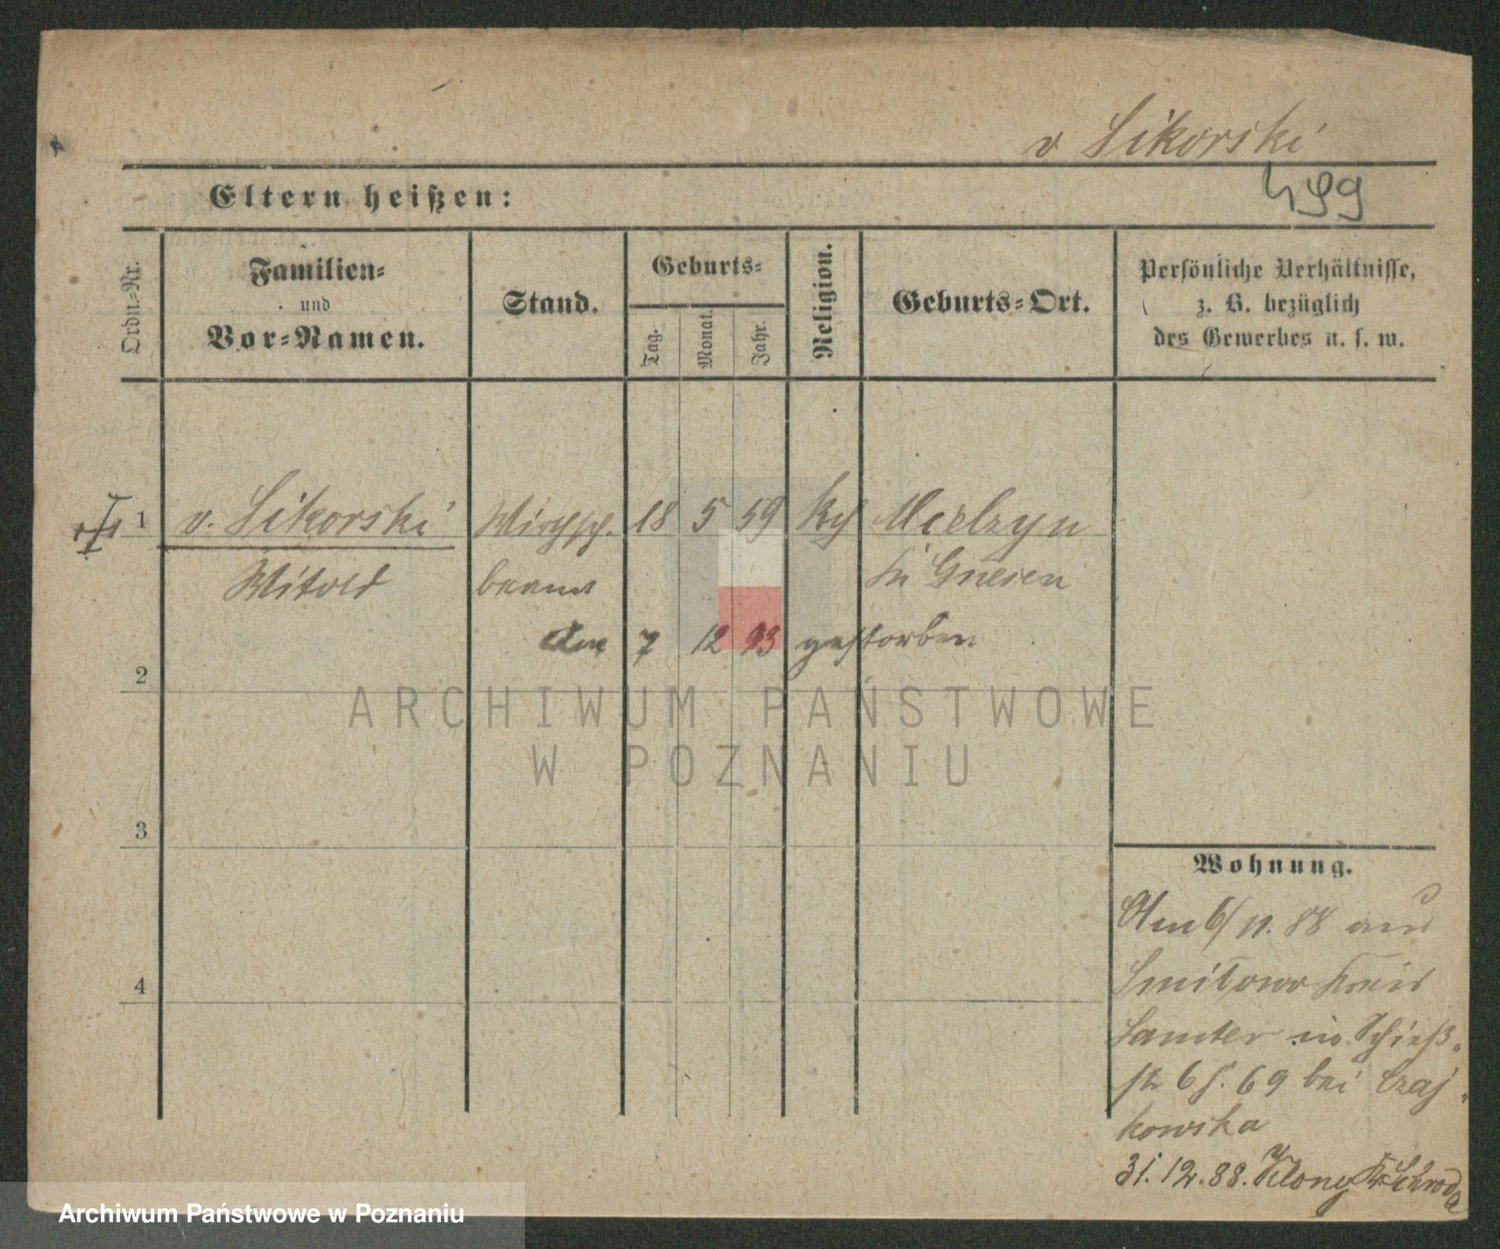 v Sikorski
499
Eltern heißen:
Ordn.-Nr.
Familien-
und
Vor-Namen.
Stand.
Geburts-
Tag.
Monat.
Jahr.
Religion.
Geburts-Ort.
Persönliche Verhältnisse,
z. B. bezüglich
des Gewerbes u. s. w.
1 v. Sikorski Wirthsch. 18 5 59 Kth
Witold beamt Kr Gnesen
Am 7 12 93 gestorben
2
ARCHIWUM PAŃSTWOWE
W POZNANIU
3
4
Wohnung.
Am 6/11. 88 aus
Smilowo Kreis
Samter in Schieß-
str 6 b. 69 bei Czaj-
kowska
31. 12. 88. Kr Schroda
Archiwum Państwowe w Poznaniu